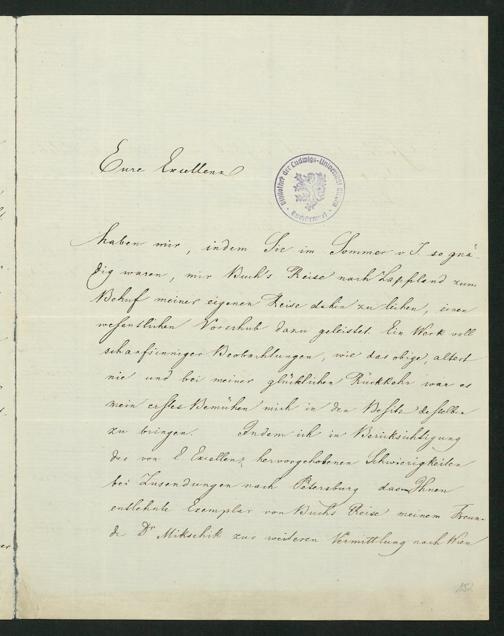 Eure Excellenz
Bibliothek der Ludwigs-Universität
haben mir, indem Sie im Sommer v. J. so gnä-
dig waren, mir Buch's Reise nach Lappland zum
Behuf meiner eigenen Reise dahin zu leihen, einen
wesentlichen Vorschub dazu geleistet. Ein Werk voll
scharfsinniger Beobachtungen, wie das obige, altert
nie und bei meiner glücklichen Rückkehr war es
mein erstes Bemühen mich in den Besitz desselben
zu bringen. Indem ich in Berücksichtigung
der von E. Excellenz hervorgehobenen Schwierigkeiten
bei Zusendungen nach Petersburg das Ihnen
entlehnte Exemplar von Buch's Reise meinem Freun-
de Dr Mikschik zur weiteren Vermittlung nach Wien